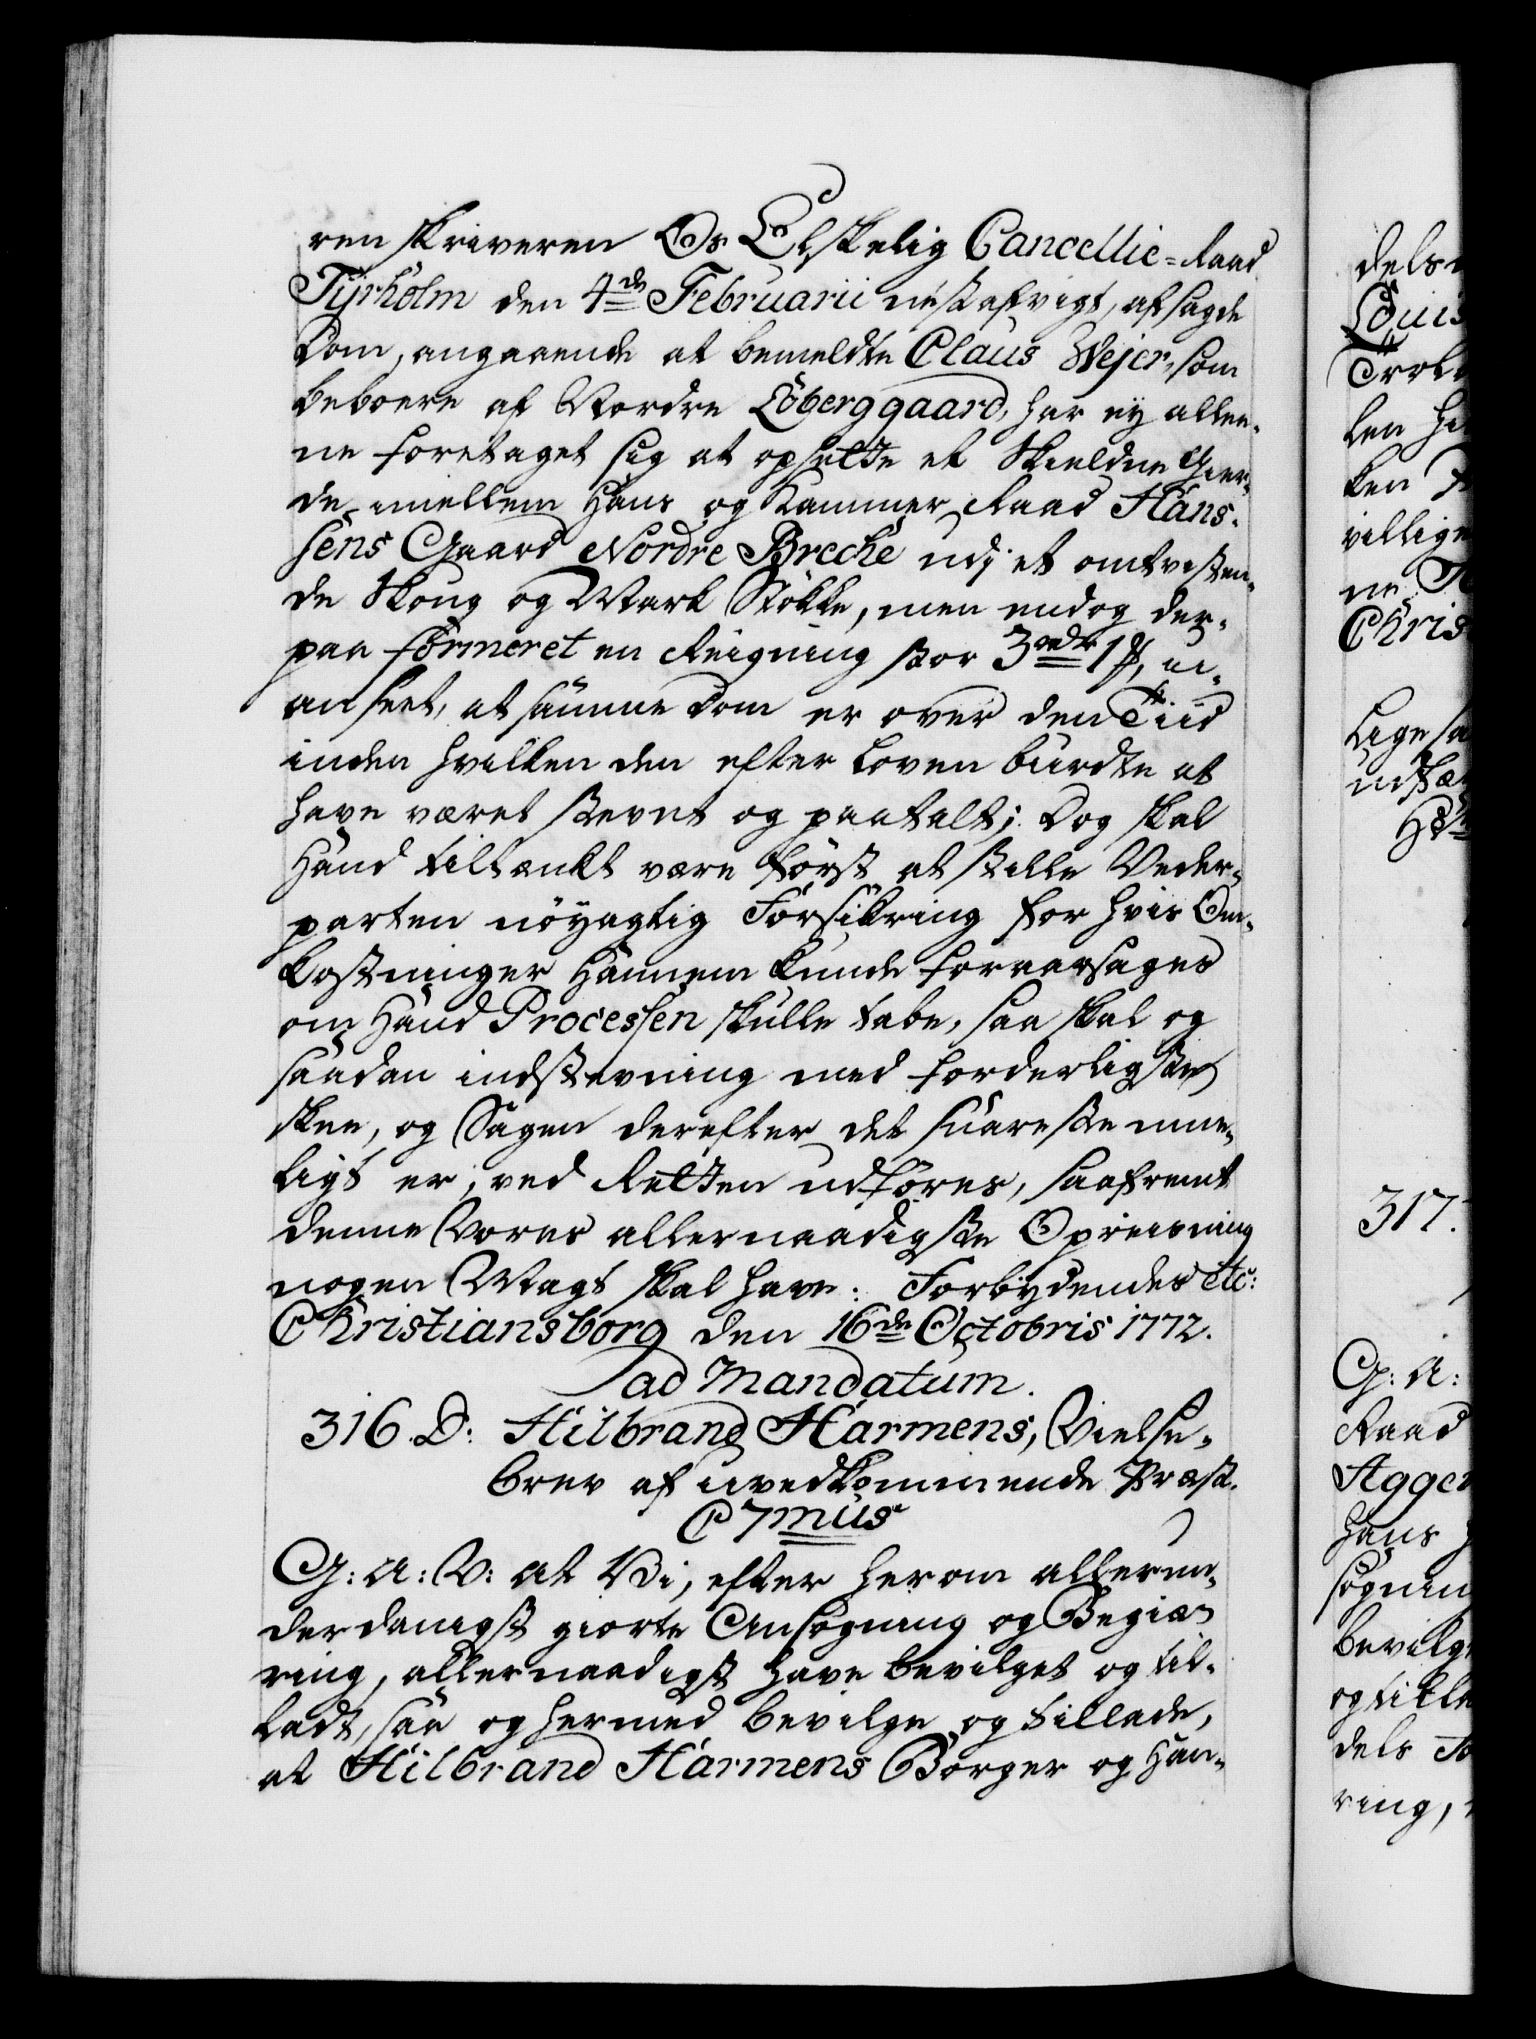 ren skriveren Os Elskelig Cancellie-Raad
Tyrholm den 4de Februarii nestafvigt, afsagde
Dom, angaaende at bemeldte Claus Wejer, som
beboere af Nordre Löberggaard, har ey allee-
ne foretaget sig at opsette et Skieldne Gier-
de imellem Hans og Kammer Raad Hans-
sens Gaard Nordre Breche udj et omtvisten-
de Skoug og Mark Støkke, men endog der-
paa formeret en Reigning stor 3 rdr 1 ß, u-
anseet, at samme Dom er over den Tiid
inden hvilken den efter Loven burdte at
have været stevnt og paatalt; Dog skal
Hand tiltænkt være først at stille Veder-
parten nöyagtig Forsikring for hvis Om-
kostninger Hannem kunde foraarsages
om Hand Processen skulle tabe, saa skal og
saadan indstevning med forderligste
skee, og Sagen derefter det snareste mue-
ligt er, ved Retten udføres, saafremt
denne Vores allernaadigste Opreisning
nogen Magt skal have. Forbydendes etc:
Christiansborg den 16de Octobris 1772.
ad Mandatum.
316. D: Hilbrand Harmens, Vielse-
brev af uvedkommende Præst.
C 7mus
G: A: V: at Vi, efter herom allerun-
derdanigst giorte Ansøgning og Begiæ-
ring, allernaadigst have bevilget og til-
ladt, saa og hermed bevilge og tillade,
at Hilbrand Harmens Borger og Han-
dels
Louis
len
ken
villig
ne
Chris
Lige sa
317.
G: A:
Raad
Agger
hans
søgnin
bevilg
og tilla
dels
ring,